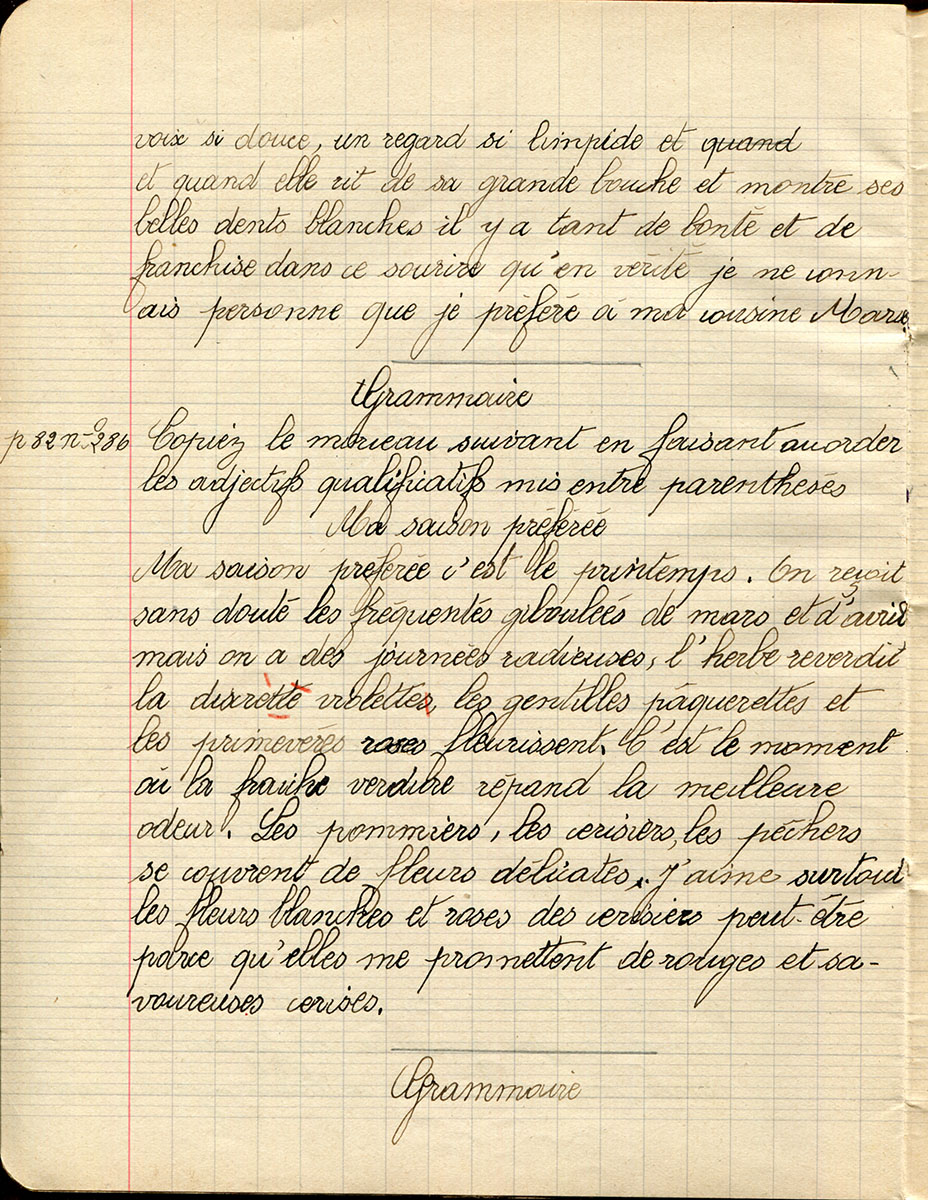 voix si douce, un regard si limpide et quand
et quand elle rit de sa grande bouche et montre ses
belles dents blanches il y a tant de bonté et de
franchise dans ce sourire qu'en vérité je ne conn-
ais personne que je préféré à ma cousine Marie
Grammaire
p 82 n° 286 Copiez le morceau suivant en faisant accorder
les adjectifs qualificatifs mis entre parenthésés
Ma saison préférée
Ma saison préférée c'est le printemps. On reçoit
sans douté les fréquentés giboulées de mars et d'avril
mais on a des journées radieuses, l'herbe reverdit
la discretté violettes, les gentilles pâquerettes et
les primevères roses fleurissent. C'est le moment
où la fraîche verdure répand la meilleure
odeur. Les pommiers, les cerisiers, les pêchers
se couvrent de fleurs délicates. J'aime surtout
les fleurs blanches et roses des cerisiers peut-être
parce qu'elles me promettent de rouges et sa-
voureuses cerises.
Grammaire